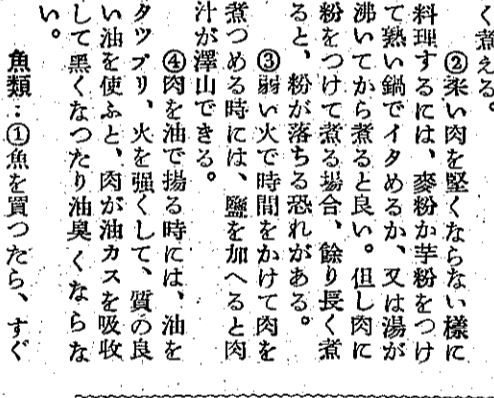 く煮える。
②柔い肉を堅くならない様に
料理するには、麥粉か芋粉をつけ
て熱い鍋でイタめるか、又は湯が
沸いてから煮ると良い。但し肉に
粉をつけて煮る場合、餘り長く煮
ると、粉が落ちる恐れがある。
③弱い火で時間をかけて肉を
煮つめる時には、鹽を加へると肉
汁が澤山できる。
④肉を油で揚る時には、油を
タツプリ、火を強くして、質の良
い油を使ふと、肉が油カスを吸收
して黒くなつたり油臭くならな
い。
魚類：①魚を買つたら、すぐ